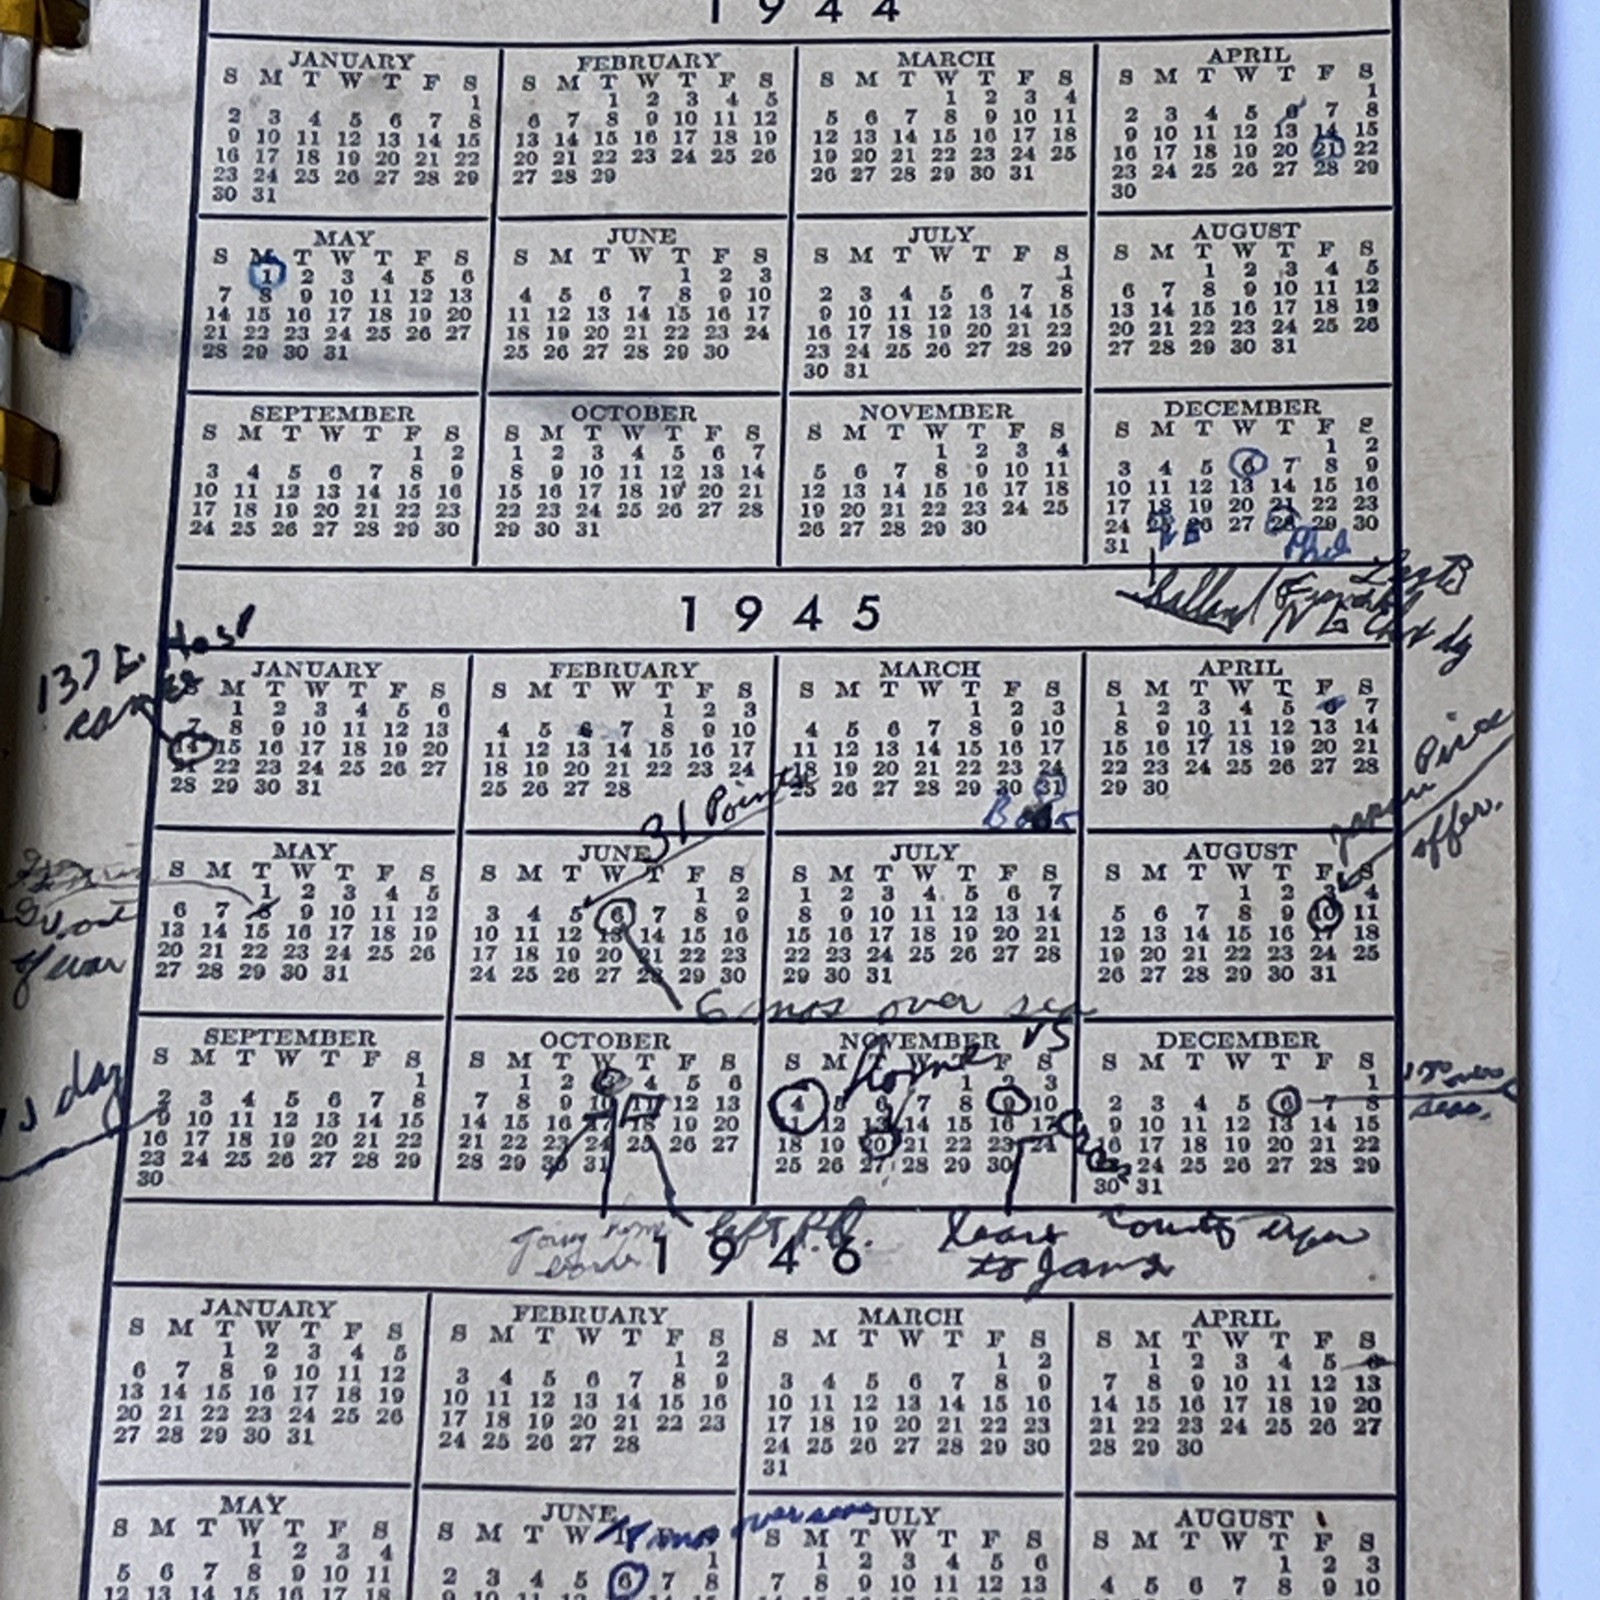 1944
JANUARY FEBRUARY MARCH APRIL
S M T W T F S S M T W T F S S M T W T F S S M T W T F S
1 1 2 3 4 5 1 2 3 4 1
2 3 4 5 6 7 8 6 7 8 9 10 11 12 5 6 7 8 9 10 11 2 3 4 5 6 7 8
9 10 11 12 13 14 15 13 14 15 16 17 18 19 12 13 14 15 16 17 18 9 10 11 12 13 14 15
16 17 18 19 20 21 22 20 21 22 23 24 25 26 19 20 21 22 23 24 25 16 17 18 19 20 21 22
23 24 25 26 27 28 29 27 28 29 26 27 28 29 30 31 23 24 25 26 27 28 29
30 31 30
MAY JUNE JULY AUGUST
S M T W T F S S M T W T F S S M T W T F S S M T W T F S
1 2 3 4 5 6 1 2 3 1 1 2 3 4 5
7 8 9 10 11 12 13 4 5 6 7 8 9 10 2 3 4 5 6 7 8 6 7 8 9 10 11 12
14 15 16 17 18 19 20 11 12 13 14 15 16 17 9 10 11 12 13 14 15 13 14 15 16 17 18 19
21 22 23 24 25 26 27 18 19 20 21 22 23 24 16 17 18 19 20 21 22 20 21 22 23 24 25 26
28 29 30 31 25 26 27 28 29 30 23 24 25 26 27 28 29 27 28 29 30 31
30 31
SEPTEMBER OCTOBER NOVEMBER DECEMBER
S M T W T F S S M T W T F S S M T W T F S S M T W T F S
1 2 1 2 3 4 5 6 7 1 2 3 4 1 2
3 4 5 6 7 8 9 8 9 10 11 12 13 14 5 6 7 8 9 10 11 3 4 5 6 7 8 9
10 11 12 13 14 15 16 15 16 17 18 19 20 21 12 13 14 15 16 17 18 10 11 12 13 14 15 16
17 18 19 20 21 22 23 22 23 24 25 26 27 28 19 20 21 22 23 24 25 17 18 19 20 21 22 23
24 25 26 27 28 29 30 29 30 31 26 27 28 29 30 24 25 26 27 28 29 30
31
1945
137 E. Hosp
JANUARY FEBRUARY MARCH APRIL
S M T W T F S S M T W T F S S M T W T F S S M T W T F S
1 2 3 4 5 6 1 2 3 1 2 3 1 2 3 4 5 6 7
7 8 9 10 11 12 13 4 5 6 7 8 9 10 4 5 6 7 8 9 10 8 9 10 11 12 13 14
14 15 16 17 18 19 20 11 12 13 14 15 16 17 11 12 13 14 15 16 17 15 16 17 18 19 20 21
21 22 23 24 25 26 27 18 19 20 21 22 23 24 18 19 20 21 22 23 24 22 23 24 25 26 27 28
28 29 30 31 25 26 27 28 25 26 27 28 29 30 31 29 30
31 Points
offer.
MAY JUNE JULY AUGUST
S M T W T F S S M T W T F S S M T W T F S S M T W T F S
1 2 3 4 5 1 2 1 2 3 4 5 6 7 1 2 3 4
6 7 8 9 10 11 12 3 4 5 6 7 8 9 8 9 10 11 12 13 14 5 6 7 8 9 10 11
13 14 15 16 17 18 19 10 11 12 13 14 15 16 15 16 17 18 19 20 21 12 13 14 15 16 17 18
20 21 22 23 24 25 26 17 18 19 20 21 22 23 22 23 24 25 26 27 28 19 20 21 22 23 24 25
27 28 29 30 31 24 25 26 27 28 29 30 29 30 31 26 27 28 29 30 31
out
of war
6 mos over sea
SEPTEMBER OCTOBER NOVEMBER DECEMBER
S M T W T F S S M T W T F S S M T W T F S S M T W T F S
1 1 2 3 4 5 6 1 2 3 1
2 3 4 5 6 7 8 7 8 9 10 11 12 13 4 5 6 7 8 9 10 2 3 4 5 6 7 8
9 10 11 12 13 14 15 14 15 16 17 18 19 20 11 12 13 14 15 16 17 9 10 11 12 13 14 15
16 17 18 19 20 21 22 21 22 23 24 25 26 27 18 19 20 21 22 23 24 16 17 18 19 20 21 22
23 24 25 26 27 28 29 28 29 30 31 25 26 27 28 29 30 23 24 25 26 27 28 29
30 30 31
day
home
going home
left P.I.
1946
JANUARY FEBRUARY MARCH APRIL
S M T W T F S S M T W T F S S M T W T F S S M T W T F S
1 2 3 4 5 1 2 1 2 1 2 3 4 5 6
6 7 8 9 10 11 12 3 4 5 6 7 8 9 3 4 5 6 7 8 9 7 8 9 10 11 12 13
13 14 15 16 17 18 19 10 11 12 13 14 15 16 10 11 12 13 14 15 16 14 15 16 17 18 19 20
20 21 22 23 24 25 26 17 18 19 20 21 22 23 17 18 19 20 21 22 23 21 22 23 24 25 26 27
27 28 29 30 31 24 25 26 27 28 24 25 26 27 28 29 30 28 29 30
31
MAY JUNE JULY AUGUST
mos over seas
S M T W T F S S M T W T F S S M T W T F S S M T W T F S
1 2 3 4 1 1 2 3 4 5 6 1 2 3
5 6 7 8 9 10 11 2 3 4 5 6 7 8 7 8 9 10 11 12 13 4 5 6 7 8 9 10
12 13 14 15 16 17 18